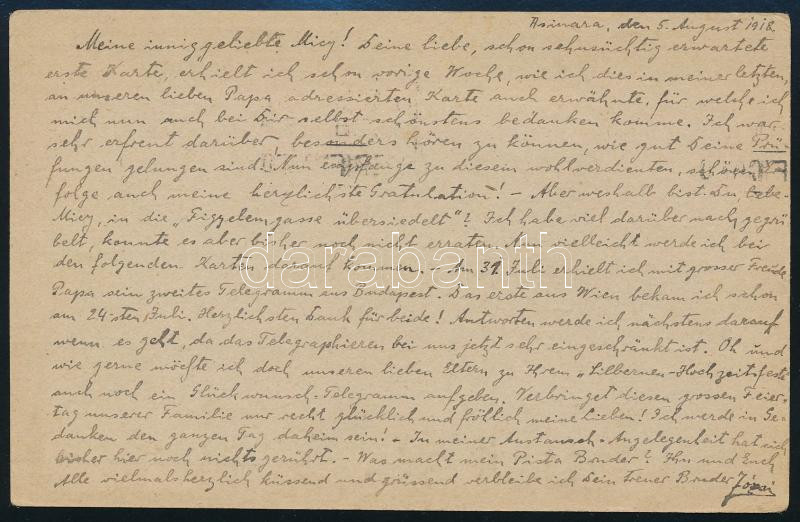 Asinara, den 5. August 1918.
Meine innig geliebte Micy! Deine liebe, schon sehnsüchtig erwartete
erste Karte, erhielt ich schon vorige Woche, wie ich dies in meiner letzten,
an unseren lieben Papa adressierten Karte auch erwähnte, für welche ich
mich nun auch bei Dir selbst schönstens bedanken komme. Ich war
sehr erfreut darüber, besonders hören zu können, wie gut Deine Prü-
fungen gelungen sind! Nun empfange zu diesem wohlverdienten, schönen
folge auch meine herzlichste Gratulation! - Aber weshalb bist Du, liebe
Micy, in die "Figgelemgasse übersiedelt"? Ich habe viel darüber nach gegrü-
belt, konnte es aber bisher noch nicht erraten. Nun vielleicht werde ich bei
den folgenden Karten darauf kommen. - Am 31. Juli erhielt ich mit grosser Freude
Papa sein zweites Telegramm aus Budapest. Das erste aus Wien bekam ich schon
am 24-sten Juli. Herzlichsten Dank für beide! Antworten werde ich nächstens darauf
wenn es geht, da das Telegraphieren bei uns jetzt sehr eingeschränkt ist. Oh und
wie gerne möchte ich doch unseren lieben Eltern zu Ihrem "Silbernen-Hochzeitsfeste"
auch noch ein Glückwunsch-Telegramm aufgeben. Verbringet diesen grossen Feier-
tag unserer Familie nur recht glücklich und fröhlich meine Lieben! Ich werde in Ge-
danken den ganzen Tag daheim sein! - In meiner Austausch-Angelegenheit hat sich
bisher hier noch nichts gerührt. - Was macht mein Pista Bruder? Ihn und Euch
Alle vielmals herzlich küssend und grüssend verbleibe ich Dein treuer Bruder
darabanth